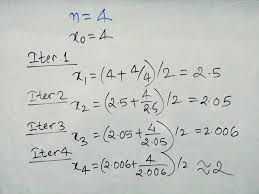 n = 4
x₀ = 4
Iter 1
x₁ = (4 + 4/4)/2 = 2.5
Iter2
x₂ = (2.5 + 4/2.5)/2 = 2.05
Iter3
x₃ = (2.05 + 4/2.05)/2 = 2.006
Iter4
x₄ = (2.006 + 4/2.006)/2 ≈ 2